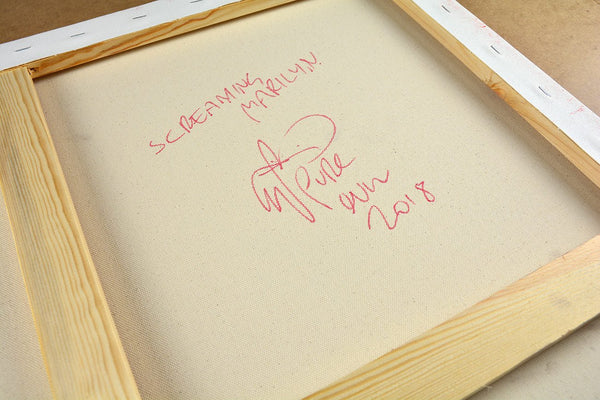 SCREAMING
MARILYN.
Pure
evil
2018